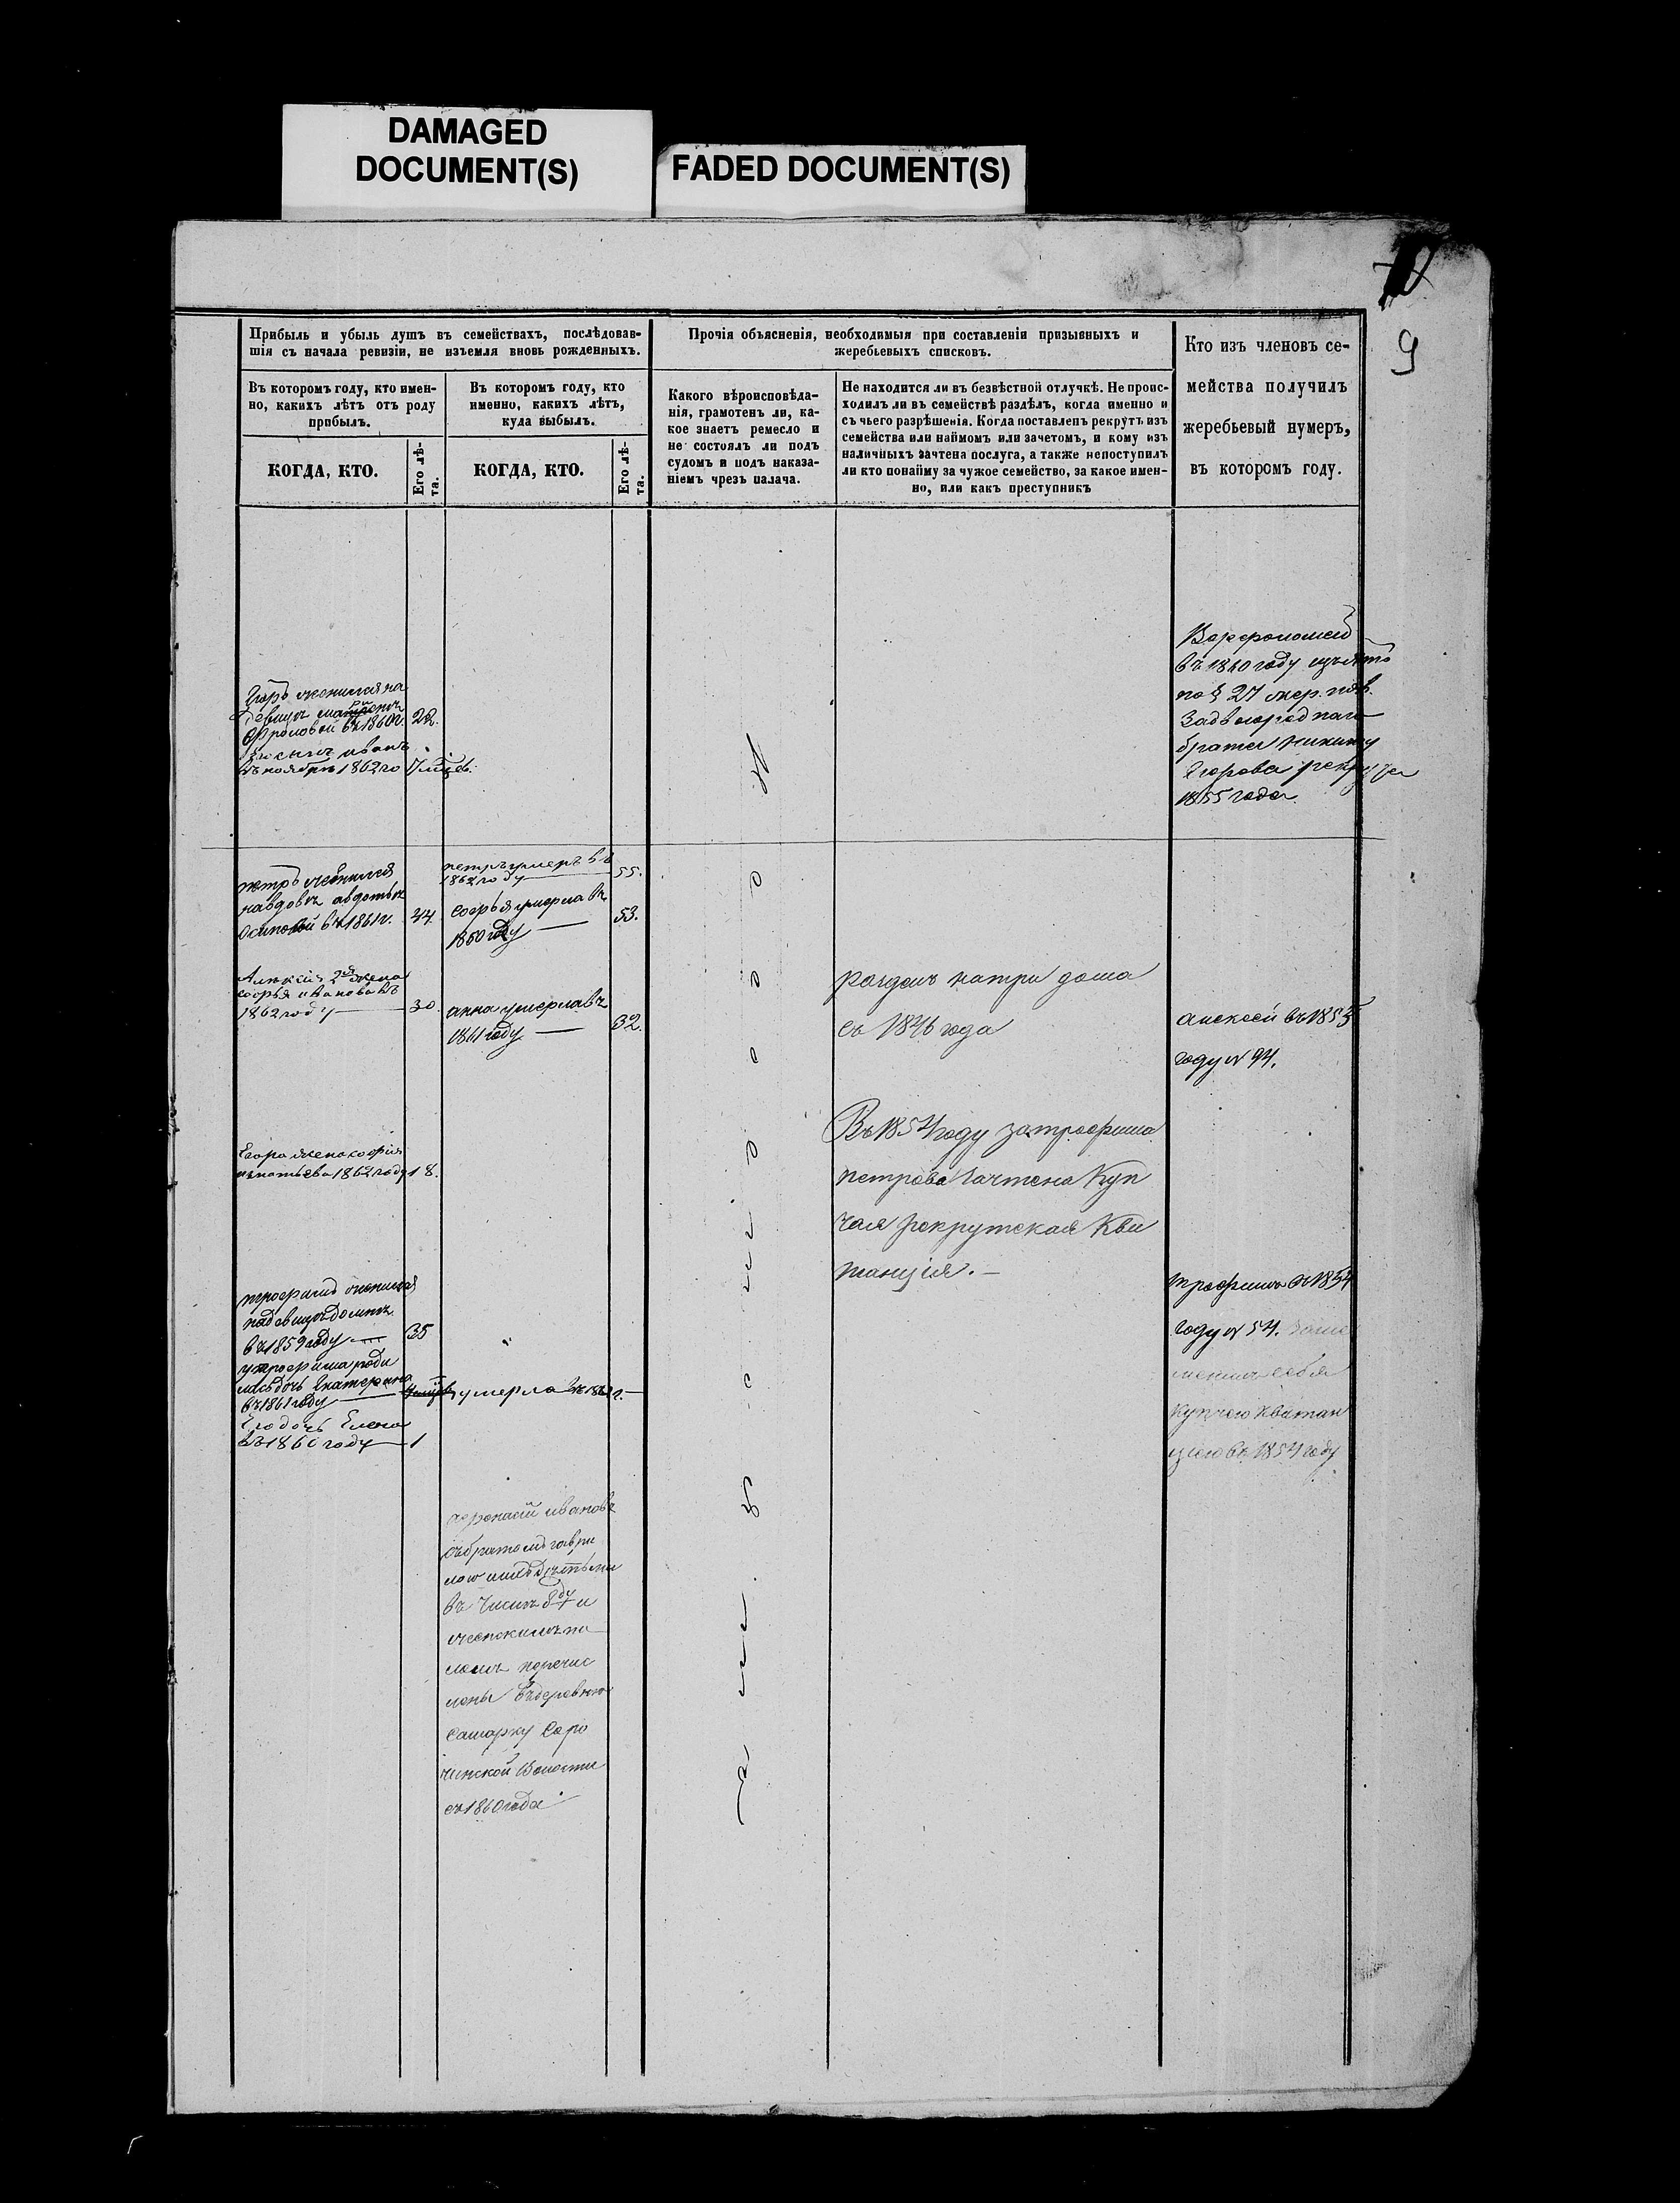 DAMAGED
DOCUMENT(S)
FADED DOCUMENT(S)
9
Прибыль и убыль душъ въ семействахъ, послѣдовав-
шія съ начала ревизіи, не изъемля вновь рожденныхъ.
Прочія объясненія, необходимыя при составленіи призывныхъ и
жеребьевыхъ списковъ.
Кто изъ членовъ се-
мейства получилъ
жеребьевый нумеръ,
въ которомъ году.
Въ которомъ году, кто имен-
но, какихъ лѣтъ отъ роду
прибылъ.
Въ которомъ году, кто
именно, какихъ лѣтъ,
куда выбылъ.
Какого вѣроисповѣда-
нія, грамотенъ ли, ка-
кое знаетъ ремесло и
не состоялъ ли подъ
судомъ и подъ наказа-
ніемъ чрезъ палача.
Не находится ли въ безвѣстной отлучкѣ. Не проис-
ходилъ ли въ семействѣ раздѣлъ, когда именно и
съ чьего разрѣшенія. Когда поставленъ рекрутъ изъ
семейства или наймомъ или зачетомъ, и кому изъ
наличныхъ зачтена послуга, а также непоступилъ
ли кто понайму за чужое семейство, за какое имен-
но, или какъ преступникъ
КОГДА, КТО.
Его лѣ-
та.
КОГДА, КТО.
Его лѣ-
та.
Егоръ женился на
девицѣ
Фроловой въ 1860г. 22.
сынъ иванъ
въ ноябрѣ 1862го
въ 1860 году
по § 27
брата никиту
Егорова рекрута
1855 года.
петръ женился
на вдовѣ авдотьѣ
Осиповой въ 1861г. 44
петръ умеръ въ
1862 году 55.
софья умерла въ
1860 году 53.
Алексѣя 2я жена
софья иванова въ
1862 году 30.
анна умерла въ
1861 году 32.
на три дома
съ 1846 года
алексѣй въ 1853
году № 94.
Въ 1854 году за трофима
петрова зачтена Куп
чая рекрутская Кви
танція.
Егора жена софія
игнатьева 1862 году 18.
трофимъ женился
на девицѣ домнѣ
въ 1859 году 35
у трофима роди
лась дочь Екатерина
въ 1861 году
умерла въ 1862 г.
Его дочь Елена
въ 1860 году 1
трофимъ въ 1854
году № 54. заме
нилъ себя
купчею квитан
цiею въ 1854 году
афонасій ивановъ
съ братомъ гаври
ломъ и дѣтьми
въ числѣ
перечис
лены въ деревню
самарку Соро
чинской Волости
съ 1860 года